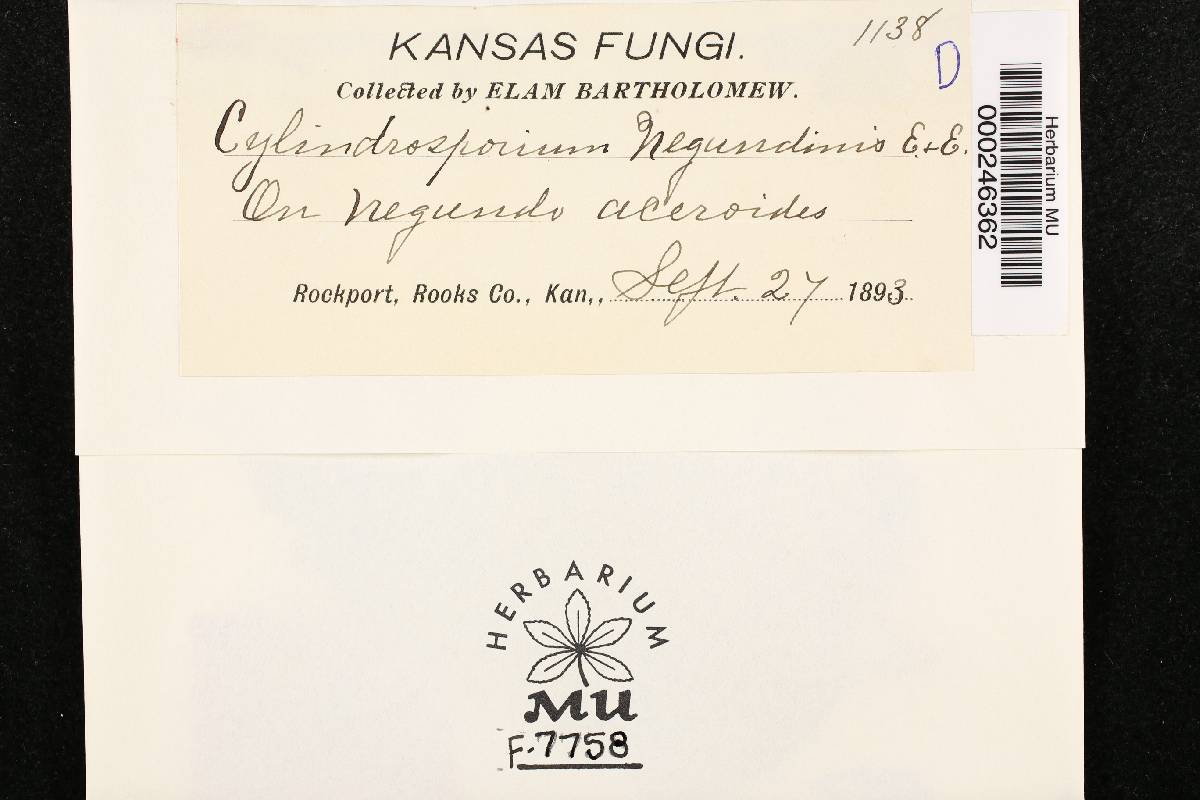 1138
D
KANSAS FUNGI.
Collected by ELAM BARTHOLOMEW.
Cylindrosporium Negundinis E.+E.
On Negundo aceroides
Rockport, Rooks Co., Kan,, Sept. 27 1893
Herbarium MU
000246362
HERBARIUM
MU
F-7758